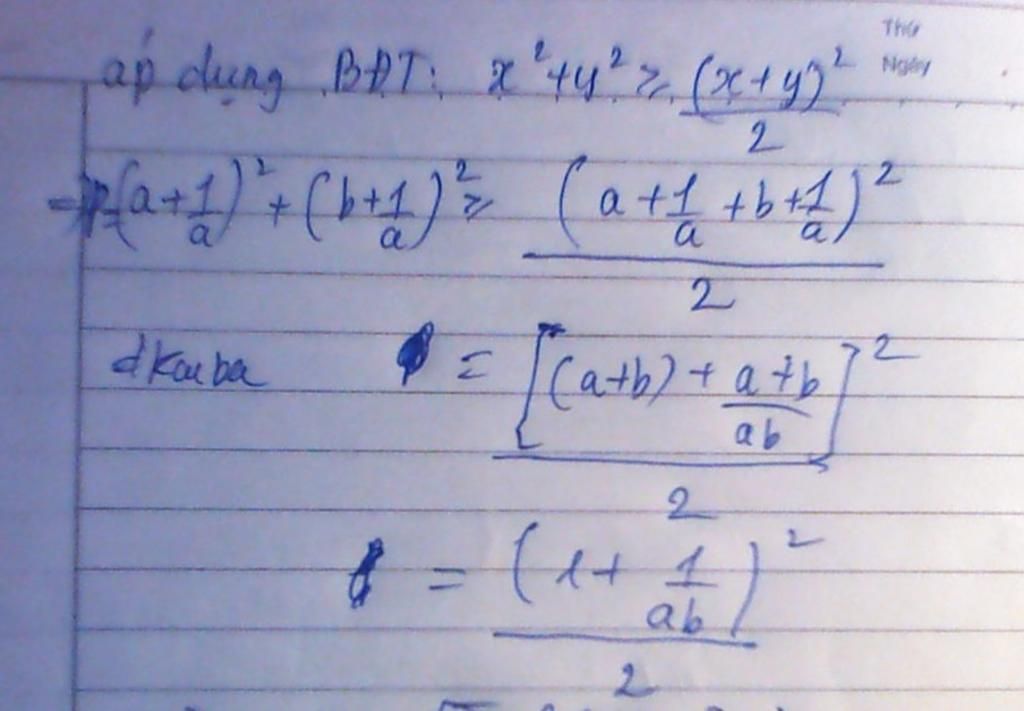 Thứ
Ngày
áp dụng BĐT: x² + y² ≥ (x+y)²/2
=> (a + 1/a)² + (b + 1/a)² ≥ (a + 1/a + b + 1/a)²/2
= [(a+b) + (a+b)/ab]²/2
= (1 + 1/ab)²/2